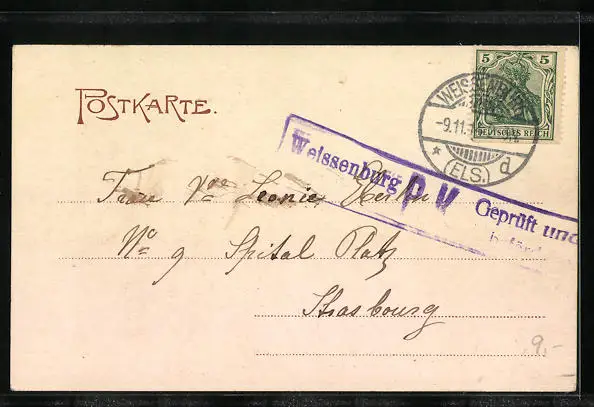 POSTKARTE.
5 5
DEUTSCHES REICH
WEISSENBURG
-9.11.
* (ELS.) d
Weissenburg P V Geprüft und
Frau Leonie
No 9 Spital Platz
Strasbourg
9,-